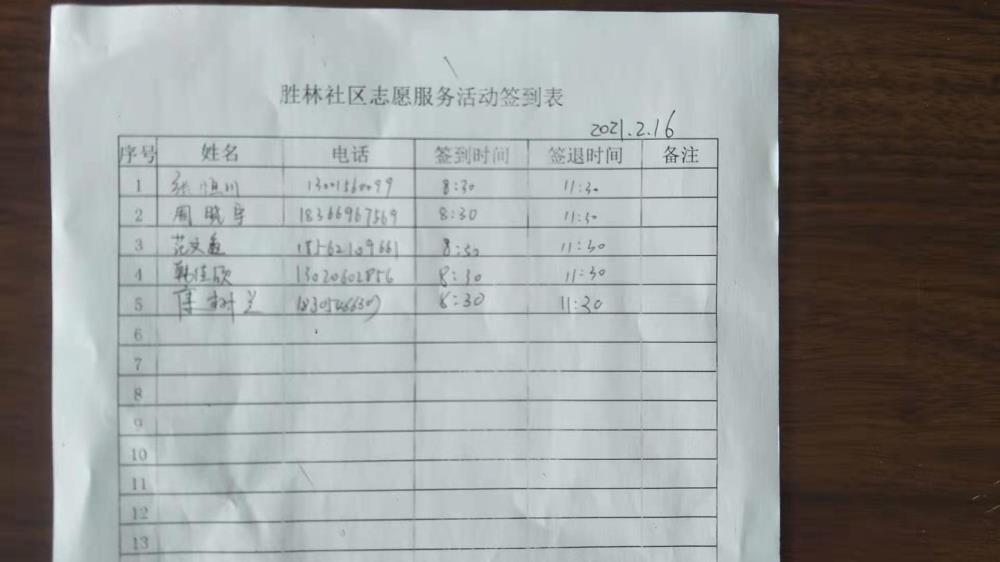 胜林社区志愿服务活动签到表
2021.2.16
序号 姓名 电话 签到时间 签退时间 备注
1 张恒川 8:30 11:30
2 周晓宇 18366967569 8:30 11:30
3 范文鑫 18562109661 8:30 11:30
4 韩佳欣 13020602856 8:30 11:30
5 树兰 8:30 11:30
6
7
8
9
10
11
12
13